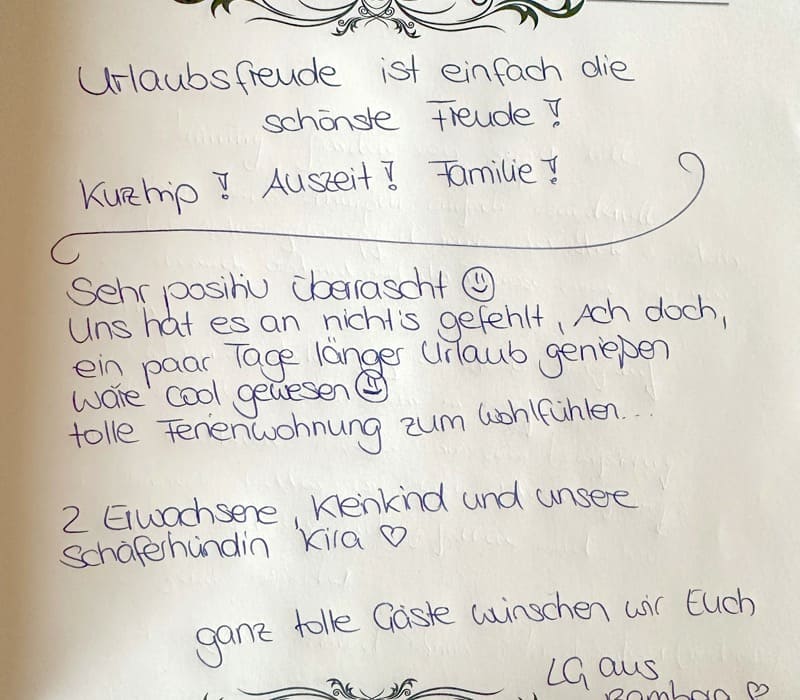 Urlaubsfreude ist einfach die
schönste Freude!
Kurztrip! Auszeit! Familie!
Sehr positiv überrascht ☺
Uns hat es an nicht's gefehlt, Ach doch,
ein paar Tage länger Urlaub genießen
wäre cool gewesen ☺
tolle Ferienwohnung zum Wohlfühlen...
2 Erwachsene, Kleinkind und unsere
Schäferhündin Kira ♡
ganz tolle Gäste wünschen wir Euch
LG aus